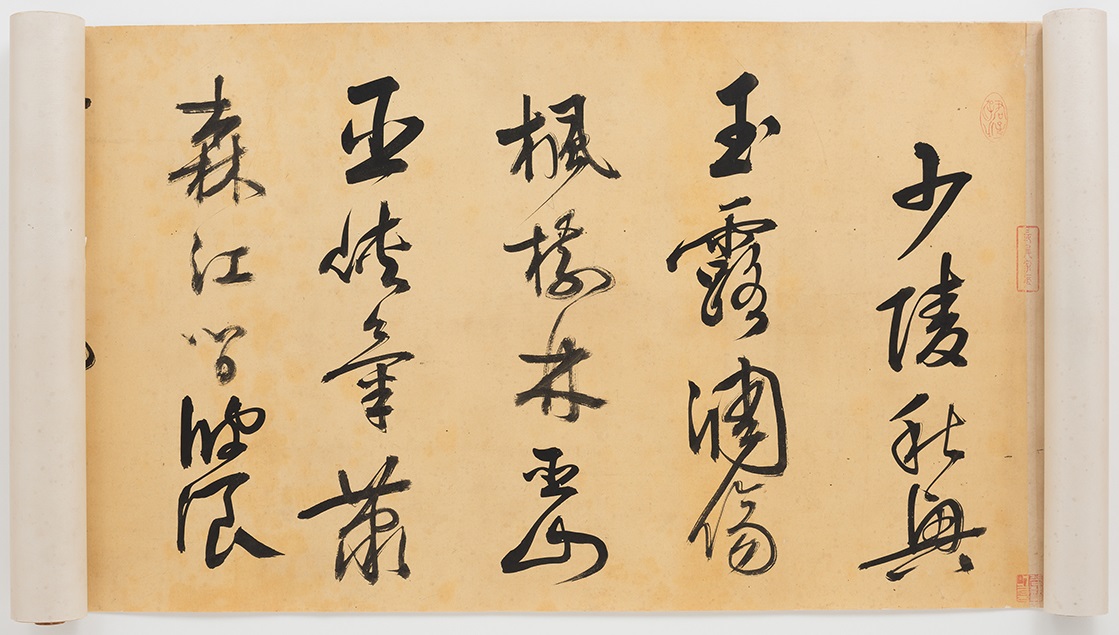 少陵秋興
玉露凋傷
楓樹林巫山
巫峽氣蕭
森江間波浪